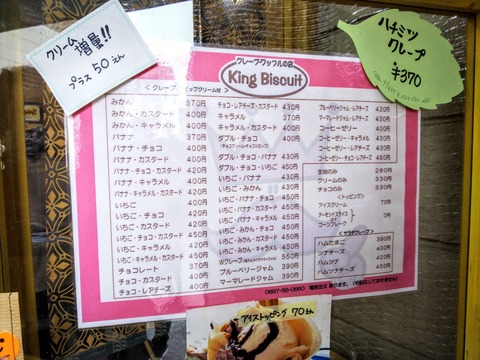 クリーム
増量!!
プラス 50えん
ハチミツ
クレープ
¥370
クレープ・ワッフルの店
King Biscuit
みかん 370円
みかん・カスタード 400円
みかん・キャラメル 400円
バナナ 370円
バナナ・チョコ 400円
バナナ・カスタード 400円
バナナ・チョコ・カスタード 420円
バナナ・キャラメル 400円
バナナ・キャラメル・カスタード 420円
いちご 400円
いちご・チョコ 420円
いちご・カスタード 420円
いちご・チョコ・カスタード 450円
いちご・キャラメル 420円
チョコレート 370円
チョコ・カスタード 400円
チョコ・レアチーズ 400円
チョコ・レアチーズ・カスタード 430円
キャラメル 370円
キャラメル・カスタード 400円
ダブル・チョコ
ダブル・チョコ・バナナ 430円
ダブル・チョコ・いちご 450円
いちご・バナナ 430円
いちご・みかん 430円
いちご・バナナ・チョコ 450円
いちご・バナナ・カスタード 450円
いちご・みかん・チョコ 450円
いちご・みかん・カスタード 450円
Wクレープ
ブルーベリージャム 390円
マーマレードジャム 390円
ブルーベリージャム・レアチーズ 430円
マーマレードジャム・レアチーズ 430円
コーヒーゼリー 400円
コーヒーゼリー・カスタード 430円
コーヒーゼリー・レアチーズ 430円
コーヒーゼリー・チョコ・レアチーズ 460円
生地のみ 280円
クリームのみ 330円
チョコのみ 330円
<トッピング>
アイスクリーム 70円
アーモンドスライス
コーンフレーク
<サラダクレープ>
ハムたまご 390円
ツナチーズ 420円
ハムツナ 420円
ハムツナチーズ 450円
アイストッピング 70えん